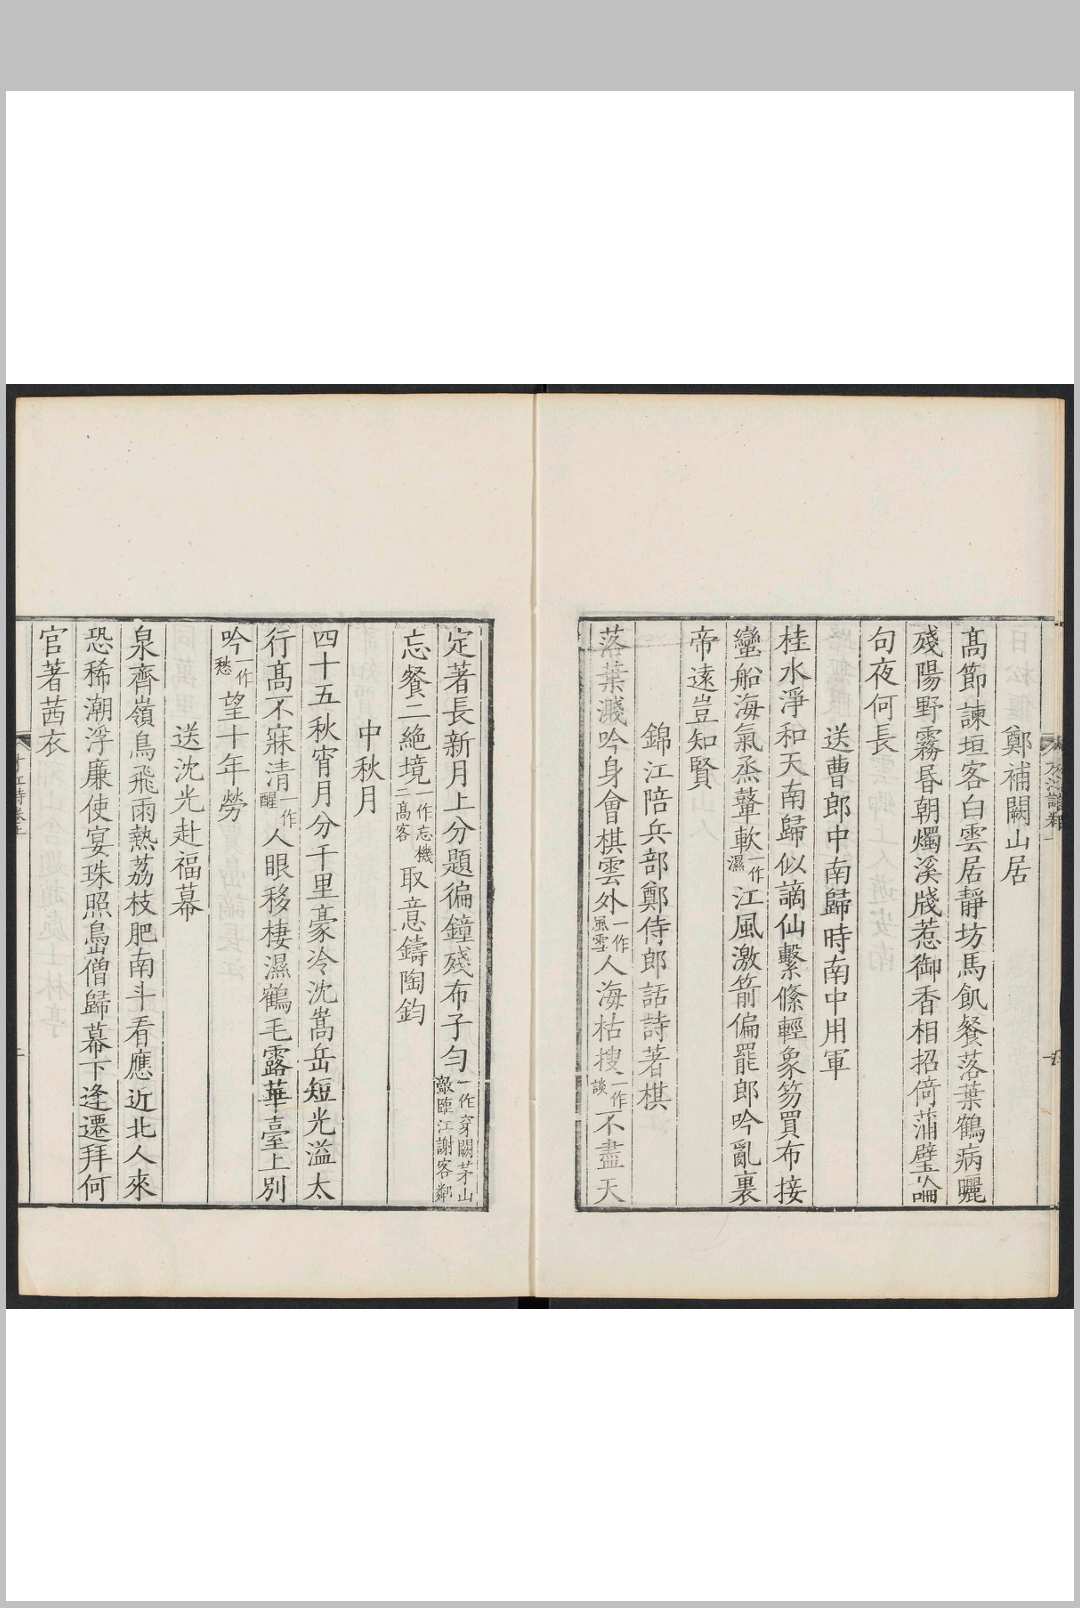 鄭補闕山居
高節諫垣客白雲居靜坊馬飢餐落葉鶴病曬
殘陽野霧昏朝燭溪牋惹御香相招倚蒲璧論
句夜何長
送曹郎中南歸時南中用軍
桂水淨和天南歸似謫仙繫絛輕象笏買布接
蠻船海氣烝鼙軟一作濕江風激箭偏罷郎吟亂裏
帝遠豈知賢
錦江陪兵部鄭侍郎話詩著棋
落葉濺吟身會棋雲外一作風雪人海枯搜一作談不盡天
定著長新月上分題徧鐘殘布子勻一作穿闕茅山敵臨江謝客鄰
忘餐二絶境一作忘機二高客取意鑄陶鈞
中秋月
四十五秋宵月分千里毫冷沈嵩岳短光溢太
行高不寐清一作醒人眼移棲濕鶴毛露華臺上別
吟一作愁望十年勞
送沈光赴福幕
泉齊嶺鳥飛雨熱荔枝肥南斗看應近北人來
恐稀潮浮廉使宴珠照島僧歸幕下逢遷拜何
官著茜衣